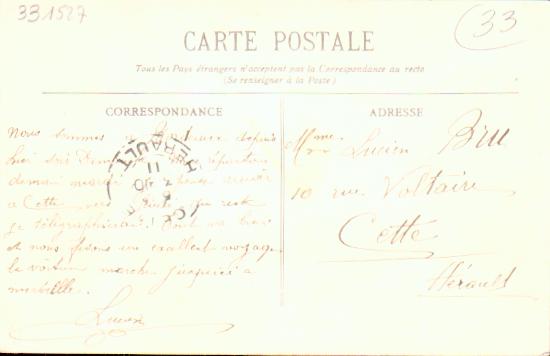 331527
33
CARTE POSTALE
Tous les Pays étrangers n'acceptent pas la Correspondance au recto
(Se renseigner à la Poste)
CORRESPONDANCE
ADRESSE
Nous sommes a depuis
hier soir
demain
a Cette vers
je télégraphierai. Tout va bien
et nous faisons un exallent voyage
la voiture marche jusqu'ici a
merveille.
Lucien
HERAULT
CETTE
Mme Lucien Bru
10 rue Voltaire
Cette
Hérault